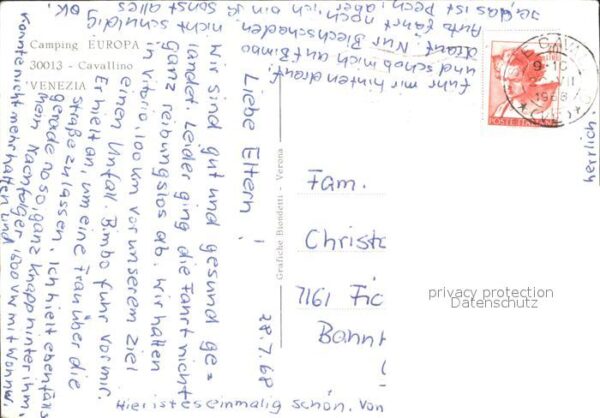 Camping EUROPA
30013 - Cavallino
VENEZIA
Grafiche Biondetti - Verona
28.7.68
Liebe Eltern!
Wir sind gut und gesund ge=
landet. Leider ging die Fahrt nicht
ganz reibungslos ab. Wir hatten
in Vitorio, 100 km vor unserem Ziel
einen Unfall. Bimbo fuhr vor mir.
Er hielt an, um eine Frau über die
Straße zu lassen. Ich hielt ebenfalls
gerade noso, ganz knapp hinter ihm.
Mein Nachfolger, 1600 VW mit Wohnw.
konnte nicht mehr halten und
fuhr mir hinten drauf
und schob mich auf Bimbo
drauf. Nur Blechschaden.
Auto fährt noch, ich bin ja
ja, das ist Pech, aber
nicht schuldig.
sonst alles
OK.
Hier ist es einmalig schön. Von
herrlich.
Fam.
Christ
7161 Fic
Bahnh
POSTE ITALIANE
CAVALL
9-10
1968
(VE)
privacy protection
Datenschutz